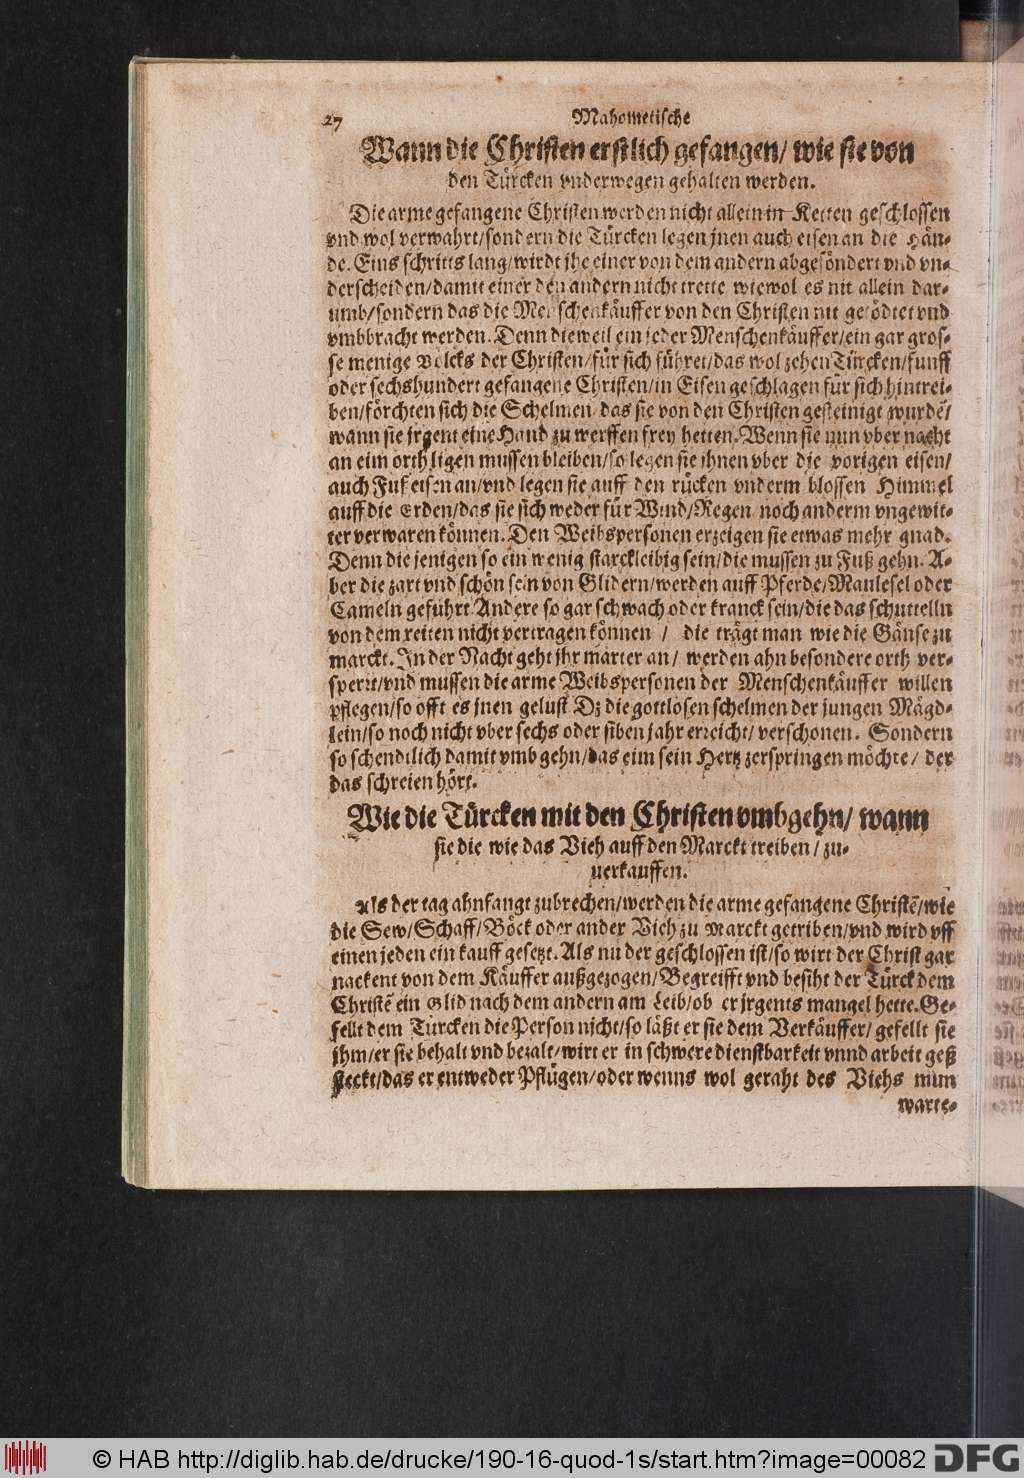 27 Mahometische
Wann die Christen erstlich gefangen/ wie sie von
den Türcken vnderwegen gehalten werden.
Die arme gefangene Christen werden nicht allein in Ketten geschlossen
vnd wol verwahrt/sondern die Türcken legen jnen auch eisen an die Hän-
de. Eins schritts lang/wirdt jhe einer von dem andern abgesöndert vnd vn-
derscheiden/damit einer den andern nicht trette wiewol es nit allein dar-
umb/sondern das die Menschenkäuffer von den Christen nit getödtet vnd
vmbbracht werden. Denn dieweil ein jeder Menschenkäuffer/ein gar gros-
se menige Volcks der Christen/für sich führet/das wol zehen Türcken/funff
oder sechshundert gefangene Christen/in Eisen geschlagen für sich hintrei-
ben/förchten sich die Schelmen das sie von den Christen gesteinigt wurdē/
wann sie jrgent eine Hand zu werffen frey hetten. Wenn sie nun vber nacht
an eim orth ligen mussen bleiben/so legen sie ihnen vber die vorigen eisen/
auch Fußeisen an/vnd legen sie auff den rücken vnderm blossen Himmel
auff die Erden/das sie sich weder für Wind/Regen noch anderm vngewit-
ter verwaren können. Den Weibspersonen erzeigen sie etwas mehr gnad.
Denn die jenigen so ein wenig starckleibig sein/die mussen zu Fuß gehn. A-
ber die zart vnd schön sein von Glidern/werden auff Pferde/Maulesel oder
Cameln geführt. Andere so gar schwach oder kranck sein/die das schuttelln
von dem reiten nicht vertragen können / die trägt man wie die Gänse zu
marckt. In der Nacht geht jhr marter an/ werden ahn besondere orth ver-
sperrt/vnd mussen die arme Weibspersonen der Menschenkäuffer willen
pflegen/so offt es jnen gelust Dz die gottlosen schelmen der jungen Mägd-
lein/so noch nicht vber sechs oder siben jahr erreicht/ verschonen. Sondern
so schendtlich damit vmb gehn/das eim sein Hertz zerspringen möchte/ der
das schreien hört.
Wie die Türcken mit den Christen vmbgehn/ wann
sie die wie das Vieh auff den Marckt treiben/ zu-
uerkauffen.
Als der tag ahnfangt zubrechen/werden die arme gefangene Christē/wie
die Sew/Schaff/Böck oder ander Vieh zu Marckt getriben/vnd wird vff
einen jeden ein kauff gesetzt. Als nu der geschlossen ist/so wirt der Christ gar
nackent von dem Käuffer außgezogen/Begreifft vnd besiht der Türck dem
Christē ein Glid nach dem andern am Leib/ob er jrgents mangel hette. Ge-
fellt dem Türcken die Person nicht/so läßt er sie dem Verkäuffer/ gefellt sie
jhm/er sie behalt vnd bezalt/wirt er in schwere dienstbarkeit vnnd arbeit geß
steckt/das er entweder Pflügen/oder wenns wol geraht des Viehs mun
warte-
© HAB http://diglib.hab.de/drucke/190-16-quod-1s/start.htm?image=00082
DFG